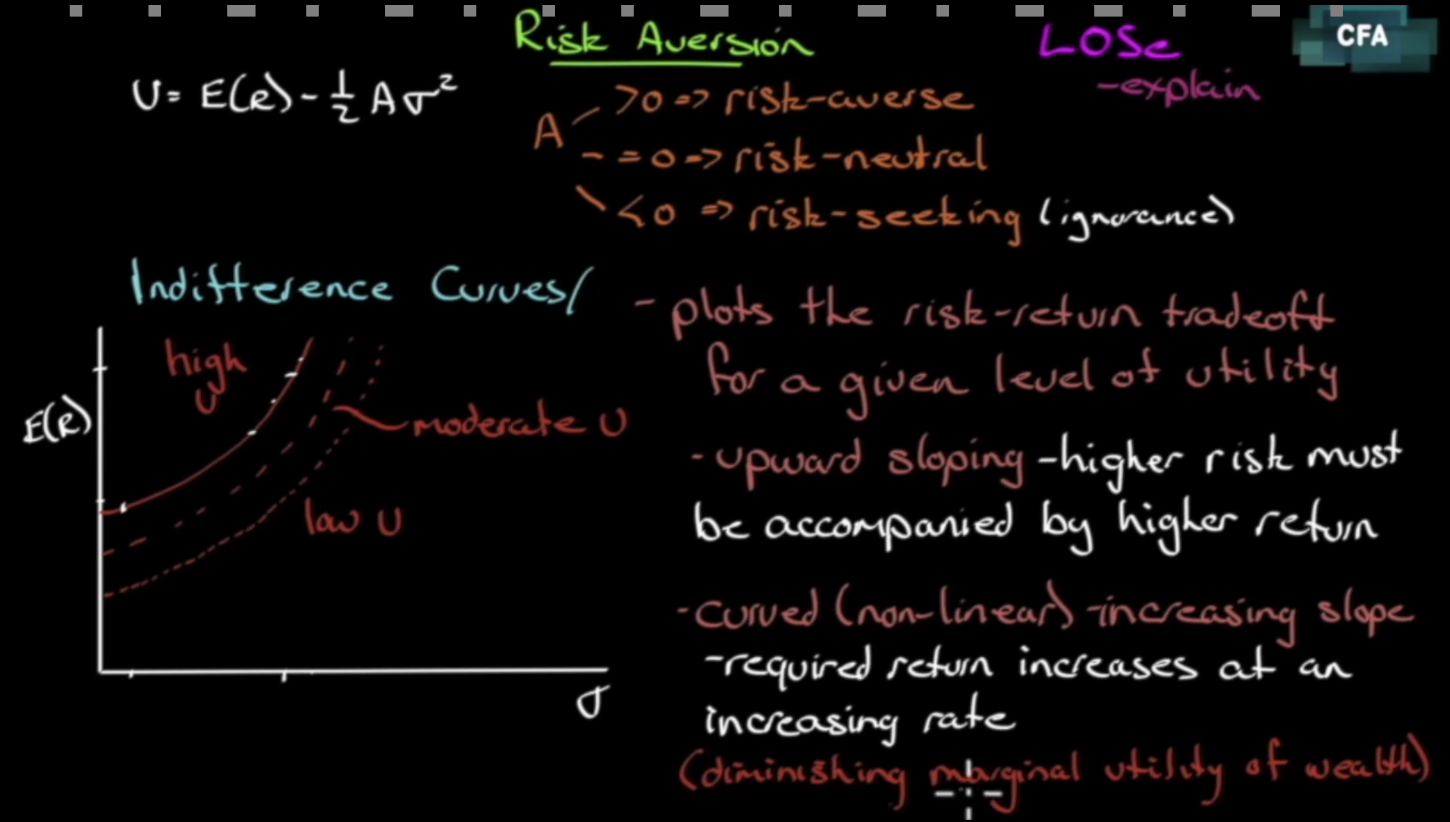 Risk Aversion
LOSe
CFA
-explain
U= E(R) - 1/2 Aσ²
A
>0 => risk-averse
- =0 => risk-neutral
<0 => risk-seeking (ignorance)
Indifference Curves/
high
U
E(R)
moderate U
low U
σ
- plots the risk-return tradeoff
for a given level of utility
- upward sloping - higher risk must
be accompanied by higher return
- curved (non-linear) - increasing slope
- required return increases at an
increasing rate
(diminishing marginal utility of wealth)